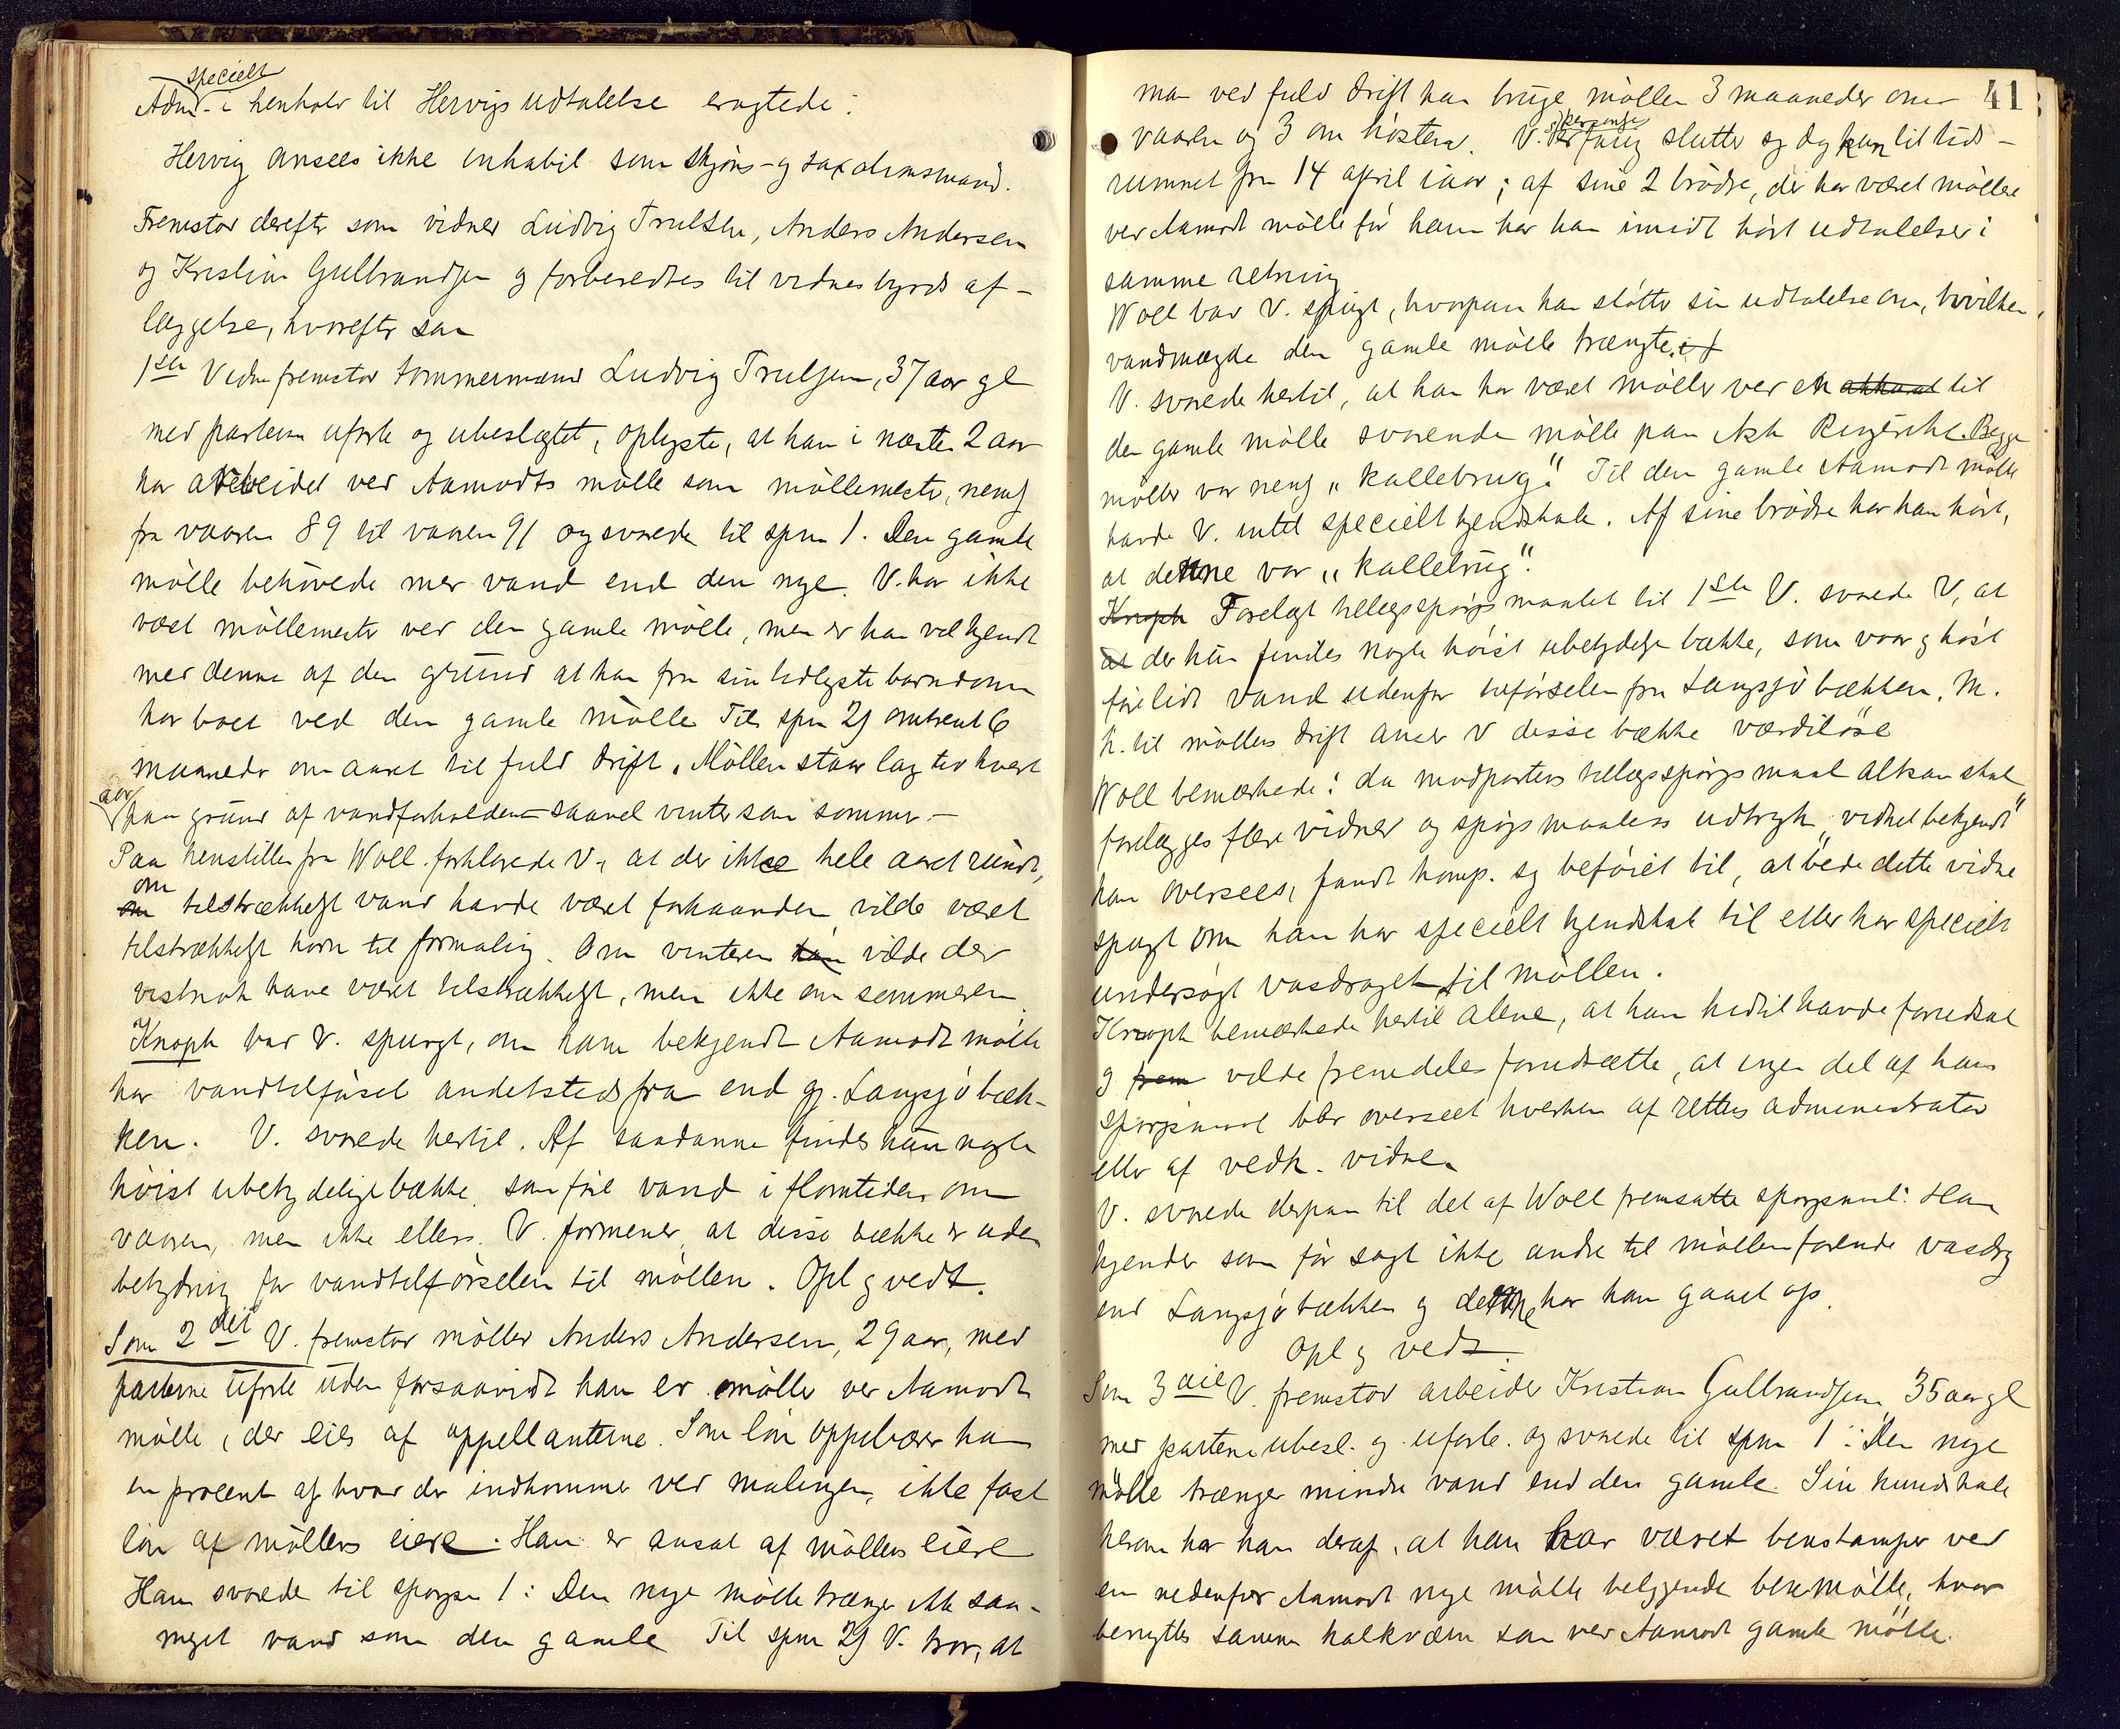 specielt
Adm. i henhold til Hervigs udtalelse eragtede:
Hervig ansees ikke inhabil som skjøns- og taxationsmand.
Fremstod derefter som vidner Ludvig Trulsen, Anders Andersen
og Kristian Gulbrandsen og forberedtes til vidnesbyrds af-
læggelse, hvorefter som
1ste Vidne fremstod tømmermand Ludvig Trulsen, 37 aar gl
med parterne uforb og ubeslægtet, oplyste, at han i næsten 2 aar
har arbeidet ved Aamodts mølle som møllemester, neml
fra vaaren 89 til vaaren 91 og svarede til spm 1. Den gamle
mølle behøvede mer vand end den nye. V. har ikke
været møllemester ved den gamle mølle, men er han vel kjendt
med denne af den grund at han fra sin tidligste barndom
har boet ved den gamle mølle Til spm 2) omtrent 6
maaneder om aaret til fuld drift. Møllen staar lag tid hvert
aar
paa grund af vandforholdene saavel vinter som sommer-
Paa henstillen fra Woll forklarede V., at der ikke hele aaret rundt,
om
om tilstrækkeligt vand havde været forhaanden vilde været
tilstrækkeligt korn til formaling. Om vinteren vilde der
vistnok have været tilstrækkeligt, men ikke om sommeren.
Knoph bad V. spurgt, om ham bekjendt Aamodt mølle
har vandtilførsel andetstedsfra end gj. Langsjøbæk-
ken. V. svarede hertil. Af saadanne findes kun nogle
høist ubetydelige bække som føre vand i flomtiden om
vaaren, men ikke ellers. V. formener, at disse bække er uden
betydning for vandtilførselen til møllen. Opl og vedt.
Som 2det V. fremstod møller Anders Andersen, 29 aar, med
parterne uforb uden forsaavidt han er møller ved Aamodt
mølle, der eies af appellanterne. Som løn oppebærer han
en procent af hvad der indkommer ved malingen, ikke fast
løn af møllens eiere. Han er ansat af møllens eiere
Han svarede til spørgsm 1: Den nye mølle trænger ikke saa-
meget vand som den gamle Til spm 2) V. tror, at
41
man ved fuld drift kan bruge møllen 3 maaneder om
vaaren og 3 om høsten. V.s personlige
erfaring slutter sig dog kun til tids-
rummet fra 14 april iaar; af sine 2 brødre, der har været møllere
ved Aamodt mølle før ham har han imidl hørt udtalelser i
samme retning
Woll bad V. spurgt, hvorpaa han støtter sin udtalelse om, hvilken
vandmægde den gamle mølle trængte.
V. svarede hertil, at han har været møller ved en akkurat til
den gamle mølle svarende mølle paa Ask Ringerike. Begge
møller var neml "kallebrug." Til den gamle Aamodt mølle
havde V. intet specielt kjendskab. Af sine brødre har han hørt,
at denne var "kallebrug".
Knoph Forelagt tillægsspørgsmaalet til 1ste V. svarede V, at
at der kun findes nogle høist ubetydelige bække, som vaar og høst
føre lidt vand udenfor tilførselen fra Langsjøbækken. M.
h. til møllens drift anser V disse bække værdiløse
Woll bemærkede: da modpartens tillægsspørgsmaal altsaa skal
forelægges flere vidner og spørgsmaalets udtryk "vidnet bekjendt"
kan oversees, fandt komp. sig beføiet til, at bede dette vidne
spurgt om han har specielt kjendskab til eller har specielt
undersøgt vasdraget til møllen.
Knoph bemærkede hertil alene, at han hidtil havde forudsat
og frem vilde fremdeles forudsætte, at ingen del af hans
spørgsmaal blir overseet hverken af rettens administrator
eller af vedk. vidne.
V. svarede derpaa til det af Woll fremsatte spørgsmaal: Han
kjender som før sagt ikke andre til møllen førende vasdrag
end Langsjøbækken og denne har han gaaet op.
Opl og vedt.
Som 3die V. fremstod arbeider Kristian Gulbrandsen 35 aar gl
med parterne ubesl. og uforb. og svarede til spm 1: Den nye
mølle trænger mindre vand end den gamle. Sin kundskab
herom har han deraf, at han har været benstamper ved
en nedenfor Aamodt nye mølle beliggende benmølle, hvor
benyttes samme kalkværn som ved Aamodt gamle mølle.